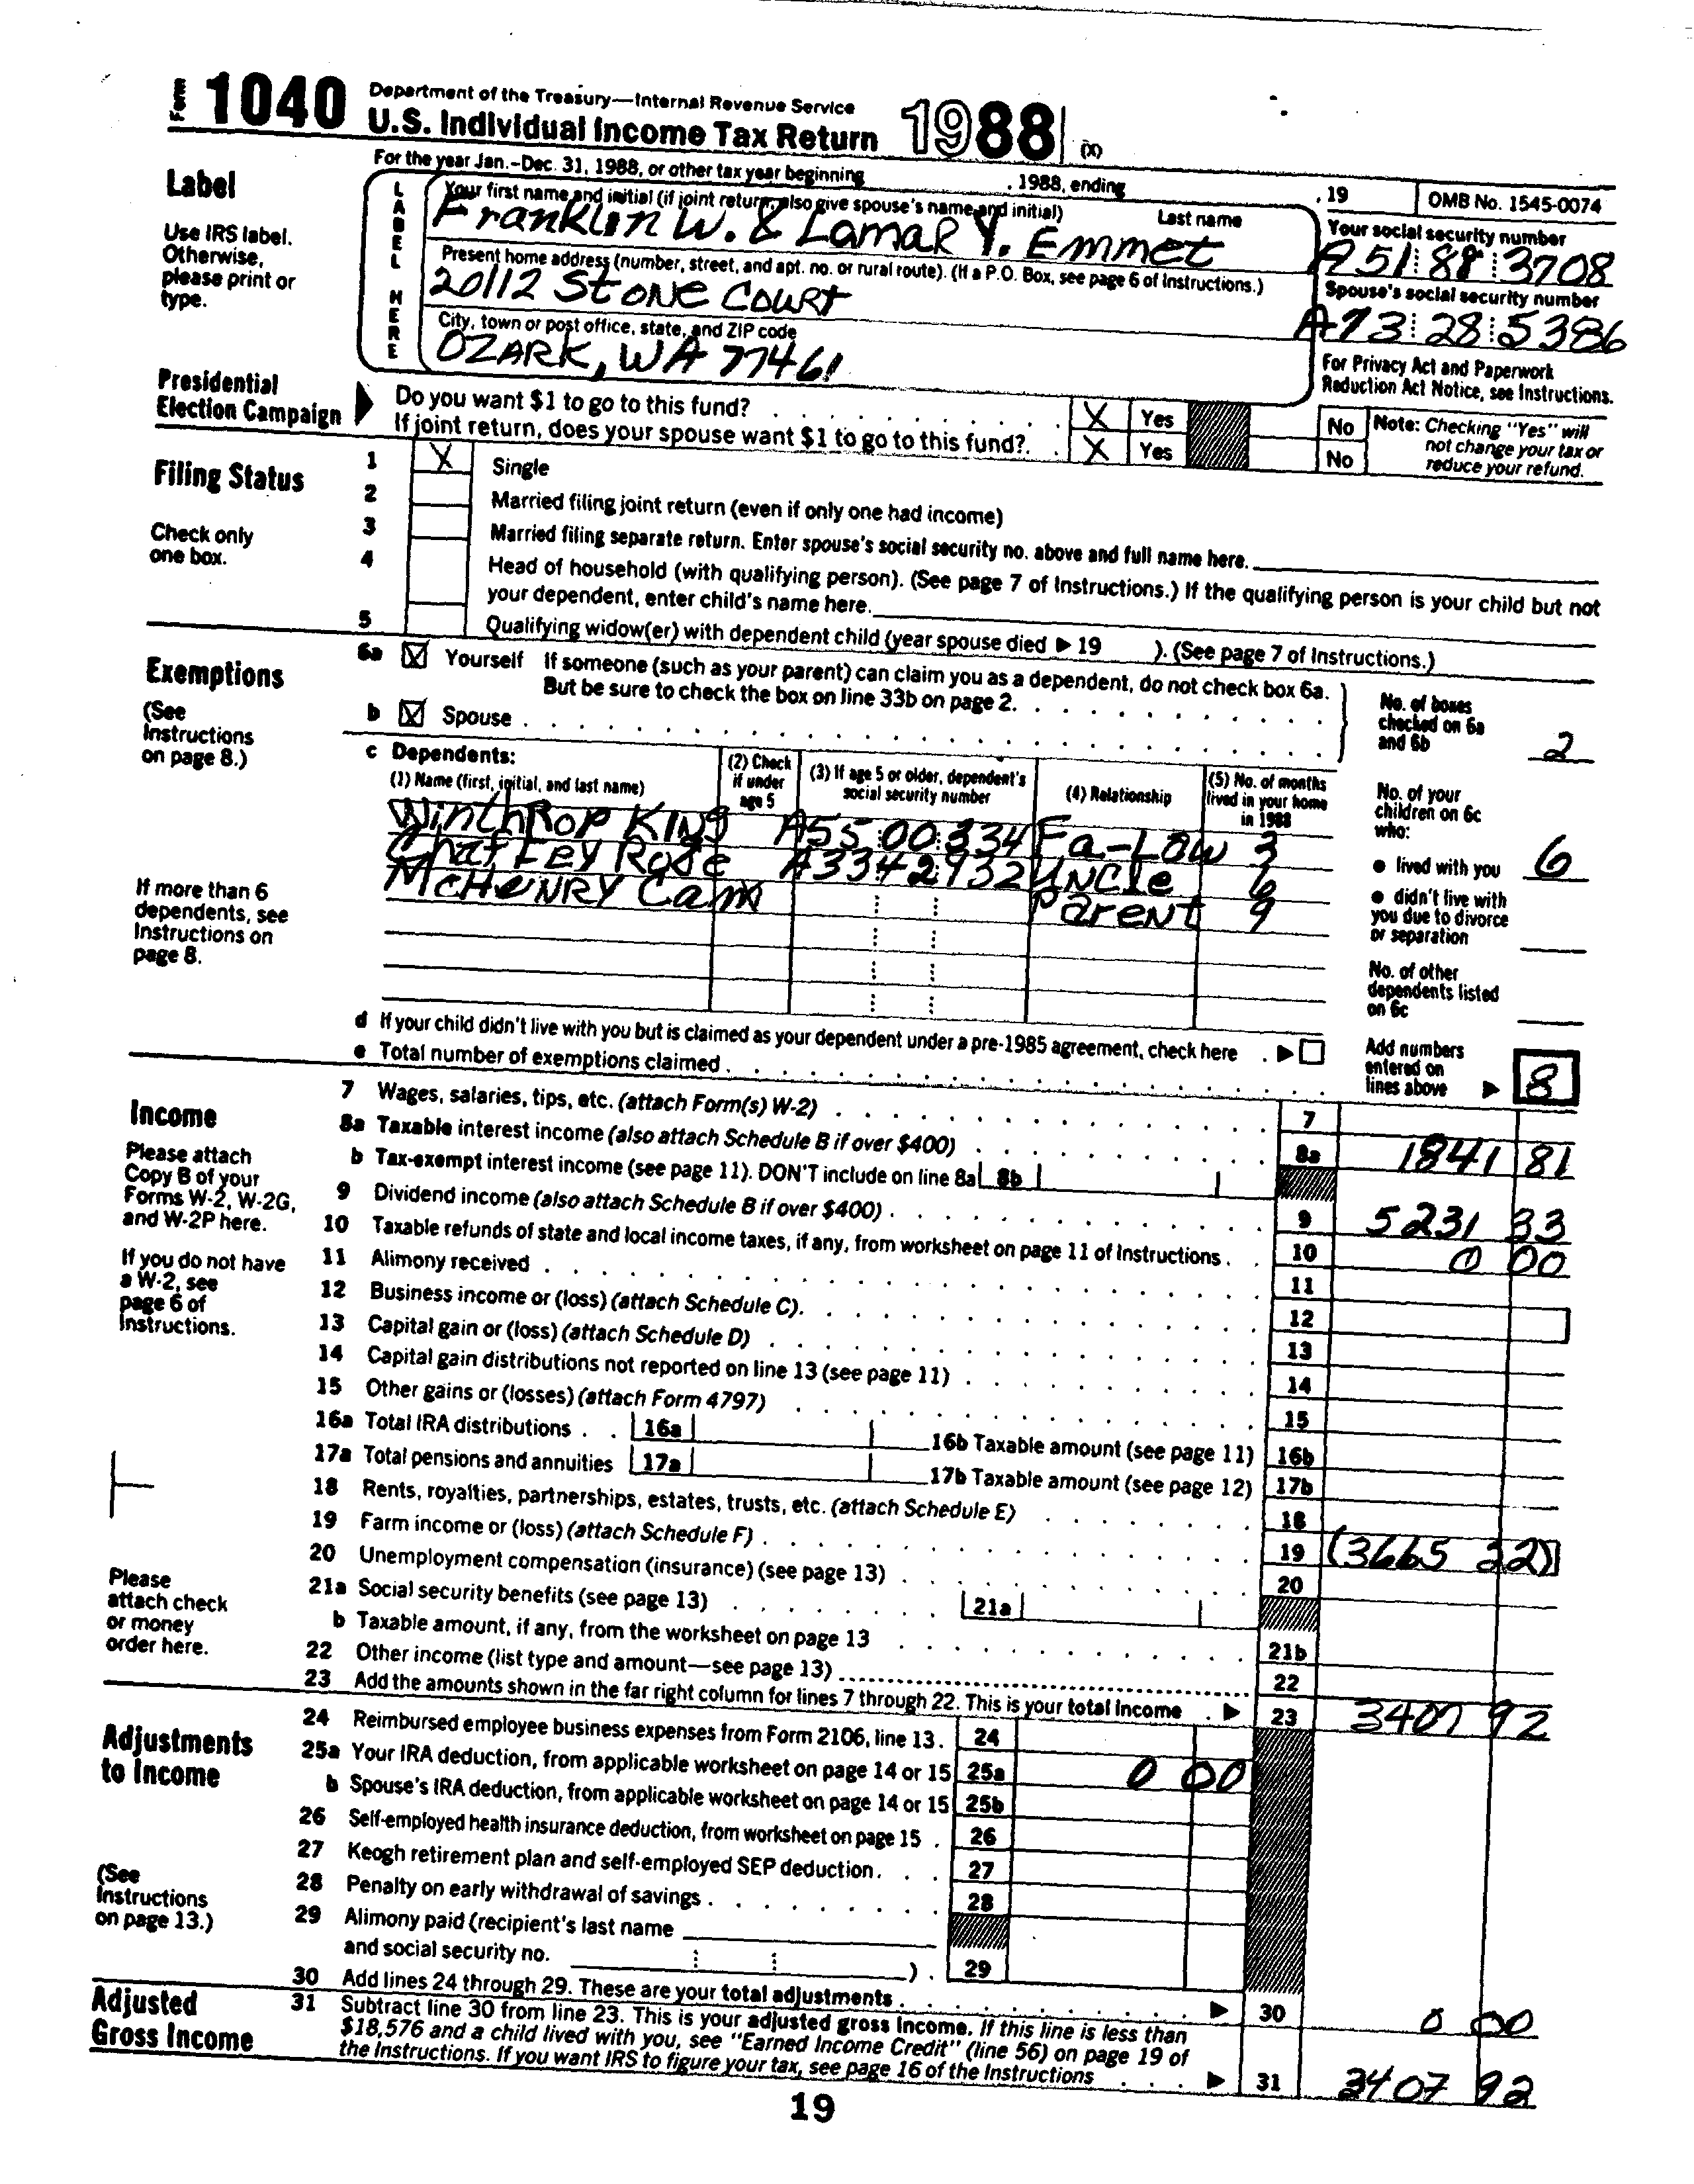 Form 1040 Department of the Treasury—Internal Revenue Service
U.S. Individual Income Tax Return 1988 (X)
For the year Jan.–Dec. 31, 1988, or other tax year beginning , 1988, ending , 19 OMB No. 1545-0074
Label
Use IRS label.
Otherwise,
please print or
type.
LABEL HERE
Your first name and initial (if joint return, also give spouse's name and initial) Last name
Franklin W. & Lamar Y. Emmet
Your social security number
A51 88 3708
Present home address (number, street, and apt. no. or rural route). (If a P.O. Box, see page 6 of Instructions.)
20112 Stone Court
Spouse's social security number
A73 28 5386
City, town or post office, state, and ZIP code
OZARK, WA 77461
For Privacy Act and Paperwork
Reduction Act Notice, see Instructions.
Presidential
Election Campaign
Do you want $1 to go to this fund? X Yes No
If joint return, does your spouse want $1 to go to this fund? X Yes No
Note: Checking "Yes" will
not change your tax or
reduce your refund.
Filing Status
Check only
one box.
1 X Single
2 Married filing joint return (even if only one had income)
3 Married filing separate return. Enter spouse's social security no. above and full name here.
4 Head of household (with qualifying person). (See page 7 of Instructions.) If the qualifying person is your child but not
your dependent, enter child's name here.
5 Qualifying widow(er) with dependent child (year spouse died ▶ 19 ). (See page 7 of Instructions.)
Exemptions
(See
Instructions
on page 8.)
6a X Yourself If someone (such as your parent) can claim you as a dependent, do not check box 6a.
But be sure to check the box on line 33b on page 2.
b X Spouse
No. of boxes
checked on 6a
and 6b 2
c Dependents:
(1) Name (first, initial, and last name)
(2) Check
if under
age 5
(3) If age 5 or older, dependent's
social security number
(4) Relationship
(5) No. of months
lived in your home
in 1988
Winthrop King A55 00 334 Fa-Law 3
Chaffey Rose A33 42 932 Uncle 6
McHenry Cam Parent 9
If more than 6
dependents, see
Instructions on
page 8.
No. of your
children on 6c
who:
• lived with you 6
• didn't live with
you due to divorce
or separation
No. of other
dependents listed
on 6c
d If your child didn't live with you but is claimed as your dependent under a pre-1985 agreement, check here ▶
e Total number of exemptions claimed
Add numbers
entered on
lines above ▶ 8
Income
Please attach
Copy B of your
Forms W-2, W-2G,
and W-2P here.
If you do not have
a W-2, see
page 6 of
Instructions.
Please
attach check
or money
order here.
7 Wages, salaries, tips, etc. (attach Form(s) W-2) 7
8a Taxable interest income (also attach Schedule B if over $400) 8a 1841 81
b Tax-exempt interest income (see page 11). DON'T include on line 8a 8b
9 Dividend income (also attach Schedule B if over $400) 9 5231 33
10 Taxable refunds of state and local income taxes, if any, from worksheet on page 11 of Instructions 10 0 00
11 Alimony received 11
12 Business income or (loss) (attach Schedule C) 12
13 Capital gain or (loss) (attach Schedule D) 13
14 Capital gain distributions not reported on line 13 (see page 11) 14
15 Other gains or (losses) (attach Form 4797) 15
16a Total IRA distributions 16a 16b Taxable amount (see page 11) 16b
17a Total pensions and annuities 17a 17b Taxable amount (see page 12) 17b
18 Rents, royalties, partnerships, estates, trusts, etc. (attach Schedule E) 18
19 Farm income or (loss) (attach Schedule F) 19 (3665 32)
20 Unemployment compensation (insurance) (see page 13) 20
21a Social security benefits (see page 13) 21a
b Taxable amount, if any, from the worksheet on page 13 21b
22 Other income (list type and amount—see page 13) 22
23 Add the amounts shown in the far right column for lines 7 through 22. This is your total income ▶ 23 3407 92
Adjustments
to Income
(See
Instructions
on page 13.)
24 Reimbursed employee business expenses from Form 2106, line 13 24
25a Your IRA deduction, from applicable worksheet on page 14 or 15 25a 0 00
b Spouse's IRA deduction, from applicable worksheet on page 14 or 15 25b
26 Self-employed health insurance deduction, from worksheet on page 15 26
27 Keogh retirement plan and self-employed SEP deduction 27
28 Penalty on early withdrawal of savings 28
29 Alimony paid (recipient's last name
and social security no. ) 29
30 Add lines 24 through 29. These are your total adjustments ▶ 30 0 00
Adjusted
Gross Income
31 Subtract line 30 from line 23. This is your adjusted gross income. If this line is less than
$18,576 and a child lived with you, see "Earned Income Credit" (line 56) on page 19 of
the Instructions. If you want IRS to figure your tax, see page 16 of the Instructions ▶ 31 3407 92
19